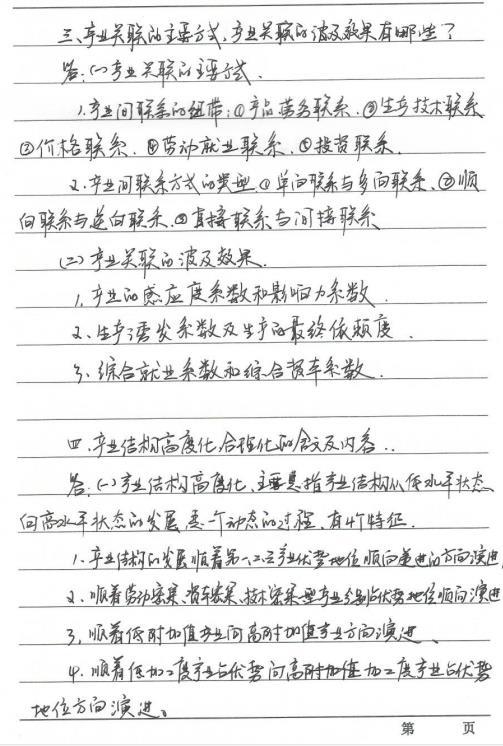 三、产业关联的主要方式，产业关联的波及效果有哪些？
答：(一)产业关联的主要方式．
1．产业间联系的纽带：①产品劳务联系．②生产技术联系
③价格联系．④劳动就业联系．⑤投资联系．
2．产业间联系方式的类型．①单向联系与多向联系．②顺
向联系与逆向联系．③直接联系与间接联系
(二)产业关联的波及效果．
1．产业的感应度系数和影响力系数．
2．生产诱发系数及生产的最终依赖度．
3．综合就业系数和综合资本系数．
四．产业结构高度化、合理化的含义及内容．．
答：(一)产业结构高度化．主要是指产业结构从低水平状态
向高水平状态的发展．是一个动态的过程．有4个特征．
1．产业结构的发展顺着第一、二、三产业优势地位顺向递进的方向演进
2．顺着劳动密集、资本密集、技术密集型产业分别占优势地位顺向演进
3，顺着低附加值产业向高附加值产业方向演进．
4．顺着低加工度产业占优势向高附加值加工度产业占优势
地位方向演进。
第 页